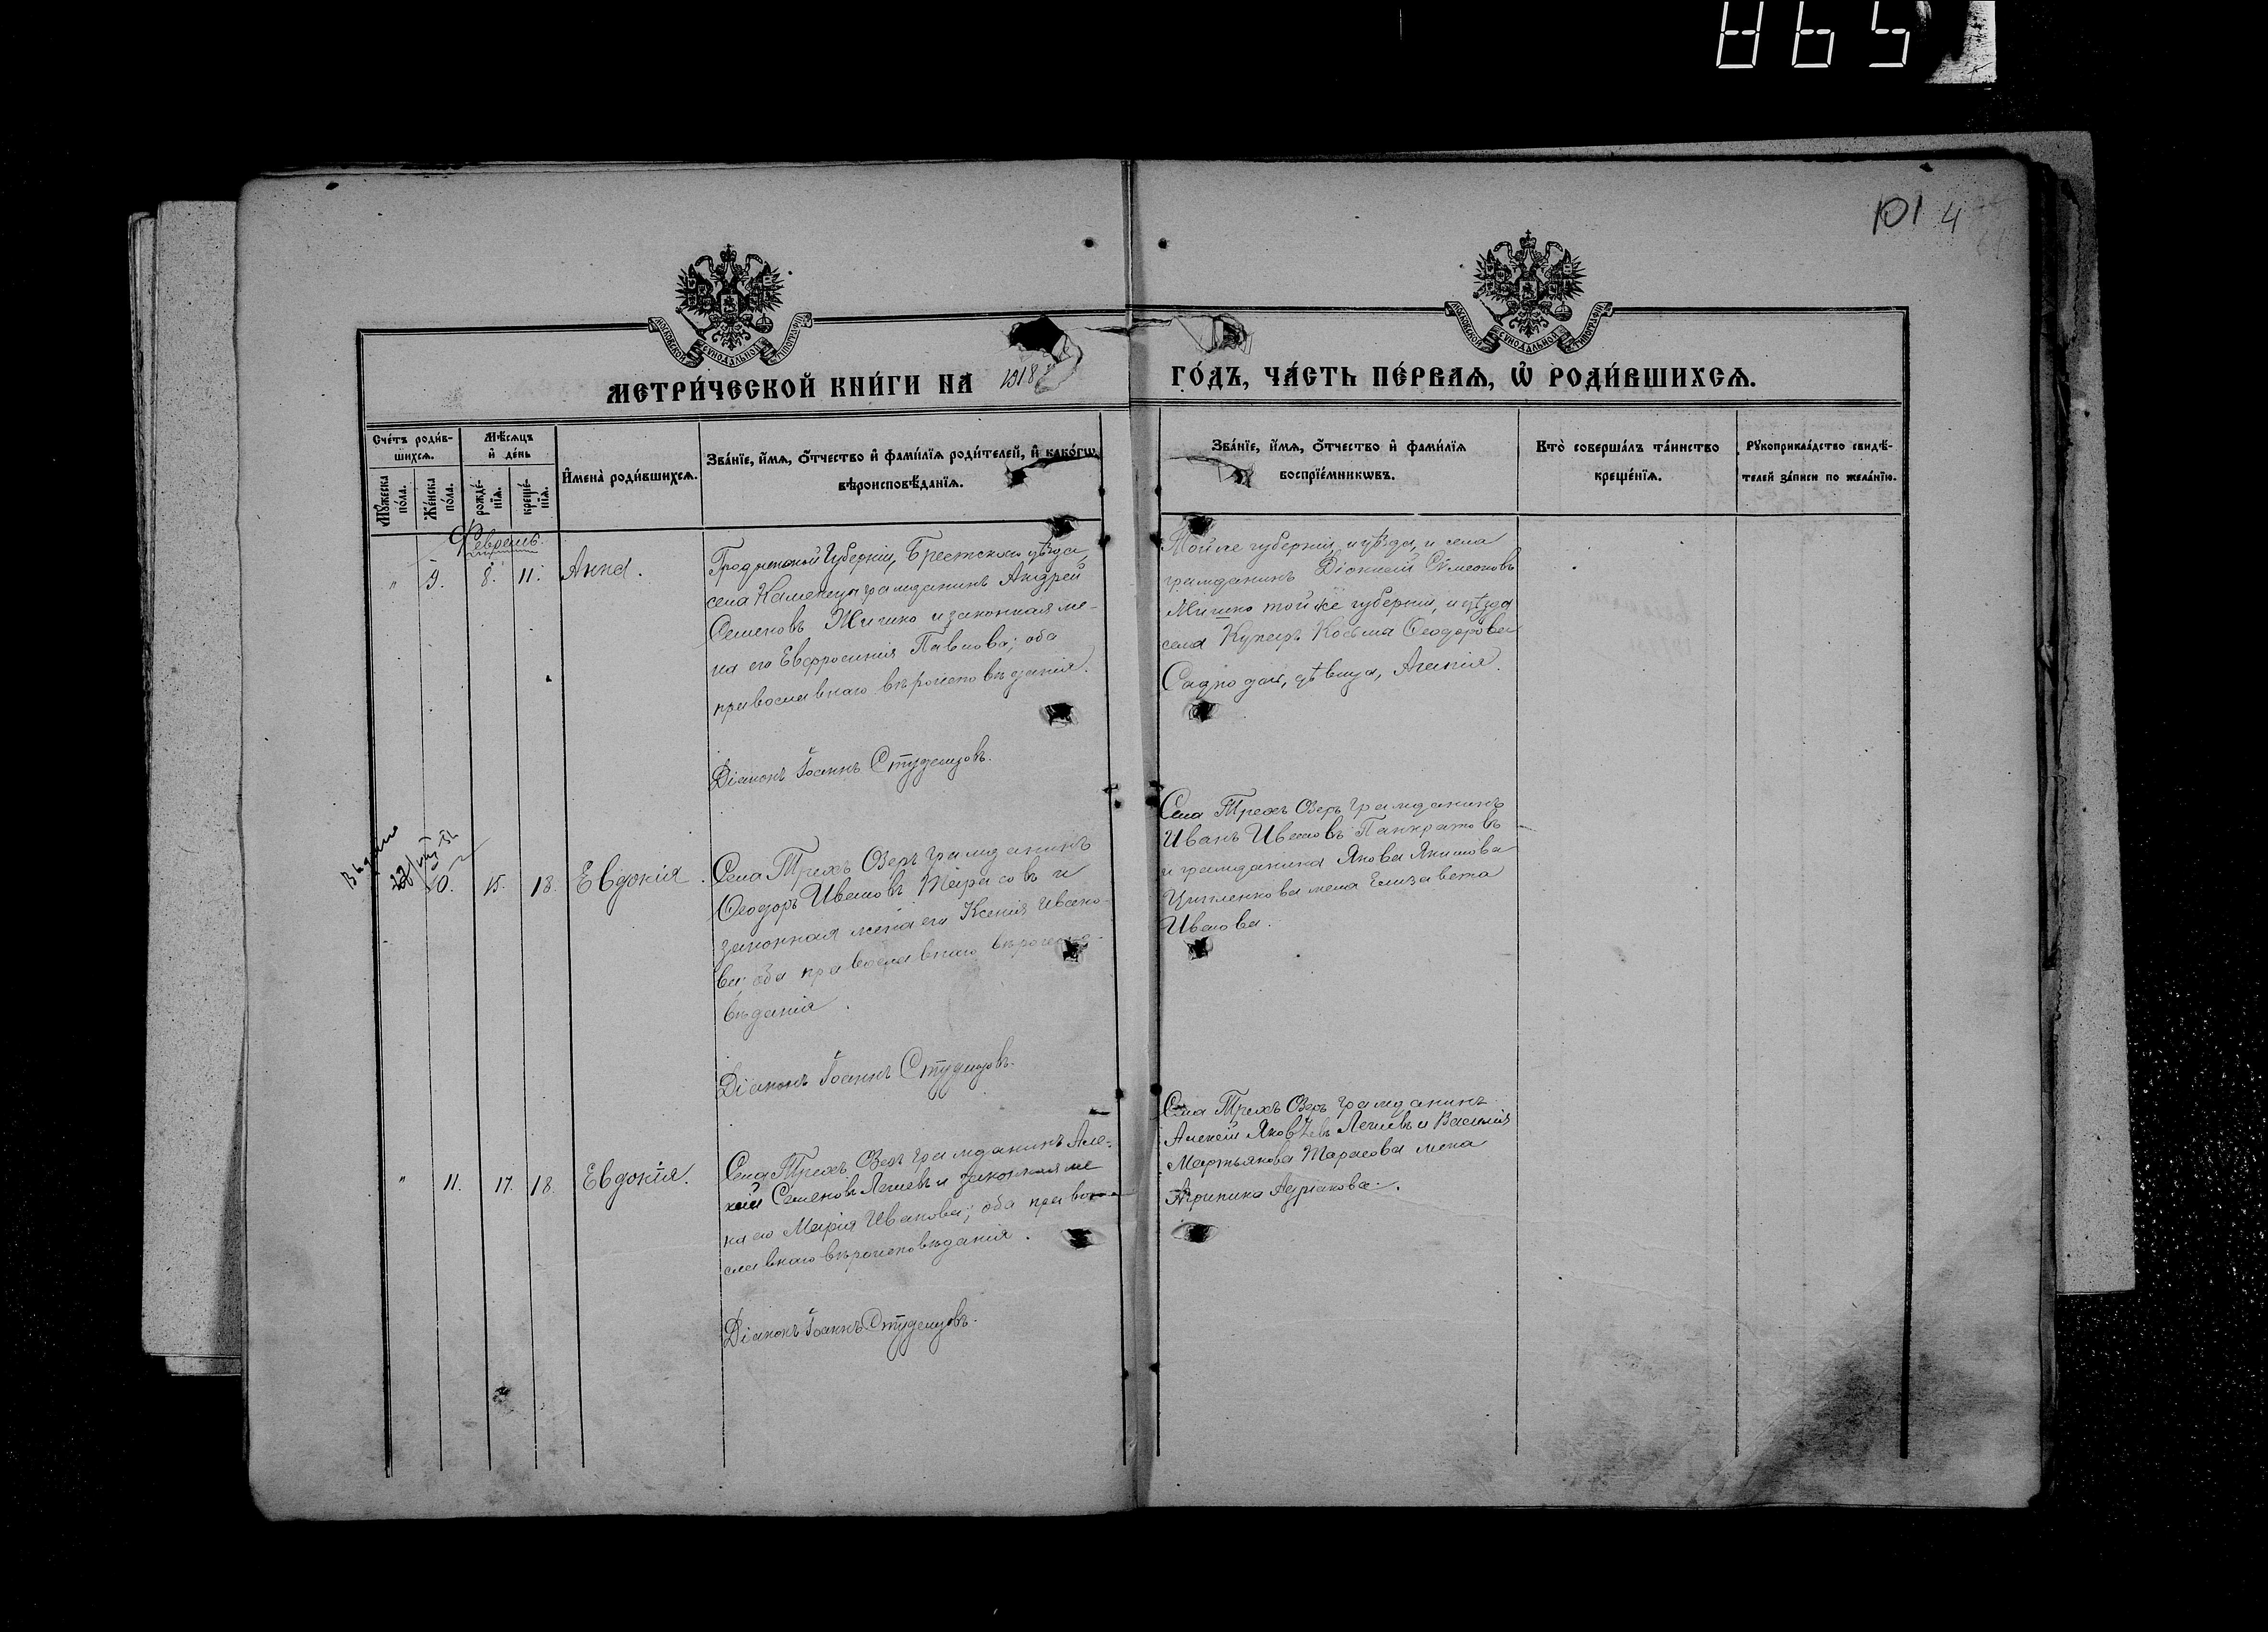 865
101 4
МОСКОВСКОЙ СѴНОДАЛЬНОЙ ТИПОГРАФІИ
МОСКОВСКОЙ СѴНОДАЛЬНОЙ ТИПОГРАФІИ
МЕТРИ́ЧЕСКОЙ КНИ́ГИ НА 1918 ГО́ДЪ, ЧА́СТЬ ПЕ́РВАѦ, Ѡ҆ РОДИ́ВШИХСѦ.
Сче́тъ роди́в-
шихсѧ.
Мꙋ́жеска по́ла.
Же́нска по́ла.
Мѣ́сѧцъ и҆ де́нь
рожде́-нїѧ.
креще́-нїѧ.
И҆мена̀ роди́вшихсѧ.
Зва́нїе, и҆́мѧ, ѻ҆́тчество и҆ фами́лїѧ роди́телей, и҆ како́гѡ
вѣроисповѣ́данїѧ.
Зва́нїе, и҆́мѧ, ѻ҆́тчество и҆ фами́лїѧ
воспрїе́мникѡвъ.
Кто̀ соверша́лъ та́инство
креще́нїѧ.
Рꙋкоприкла́дство свидѣ́-
телей за́писи по жела́нїю.
Февраль.
" 9. 8. 11. Анна.
Гродненской Губерніи, Брестскаго уѣзда,
села Каменецъ гражданинъ Андрей
Семеновъ Жишко и законная же-
на его Евфросинія Павлова; оба
православнаго вѣроисповѣданія.
Діаконъ Іоаннъ Студенцовъ.
Той же губерніи, и уѣзда, и села
гражданинъ Діонисій Сѵмеоновъ
Мишко той же губерніи, и уѣзда
села Косьма Ѳеодорова
дѣвица, Агапія.
10. 15. 18. Евдокія.
Села Трехъ Озеръ гражданинъ
Ѳеодоръ Ивановъ Тарасовъ и
законная жена его Ксенія Ивано-
ва; оба православнаго вѣроиспо-
вѣданія.
Діаконъ Іоаннъ Студенцовъ.
Села Трехъ Озеръ гражданинъ
Иванъ Ивановъ Панкратовъ
и гражданина Якова Якимова
Цыпленкова жена Елизавета
Иванова.
" 11. 17. 18. Евдокія.
Села Трехъ Озеръ гражданинъ Але-
ксій Семеновъ Ягшевъ и законная же
на его Марія Иванова; оба право-
славнаго вѣроисповѣданія.
Діаконъ Іоаннъ Студенцовъ.
Села Трехъ Озеръ гражданинъ
Алексій Яковлевъ и Василія
Мартьянова Тарасова жена
Агрипина Адріанова.